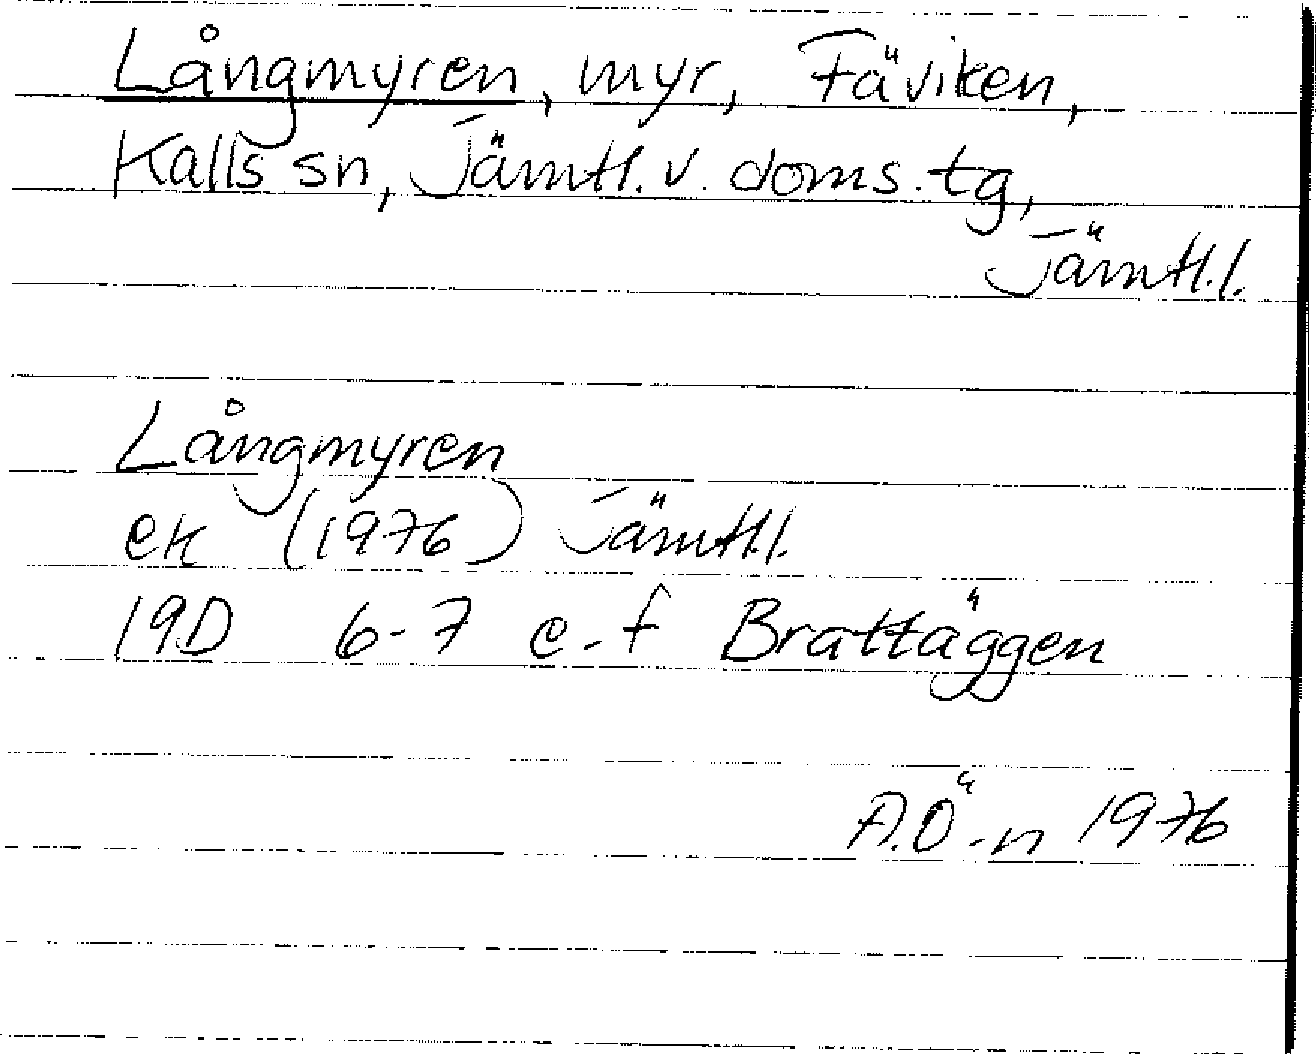 Långmyren, myr, Fäviken,
Kalls sn, Jämtl. v. doms. tg,
Jämtl.l.
Långmyren
ek (1976) Jämtl.l.
19D 6-7 e-f Brattäggen
A.Ö-n 1976